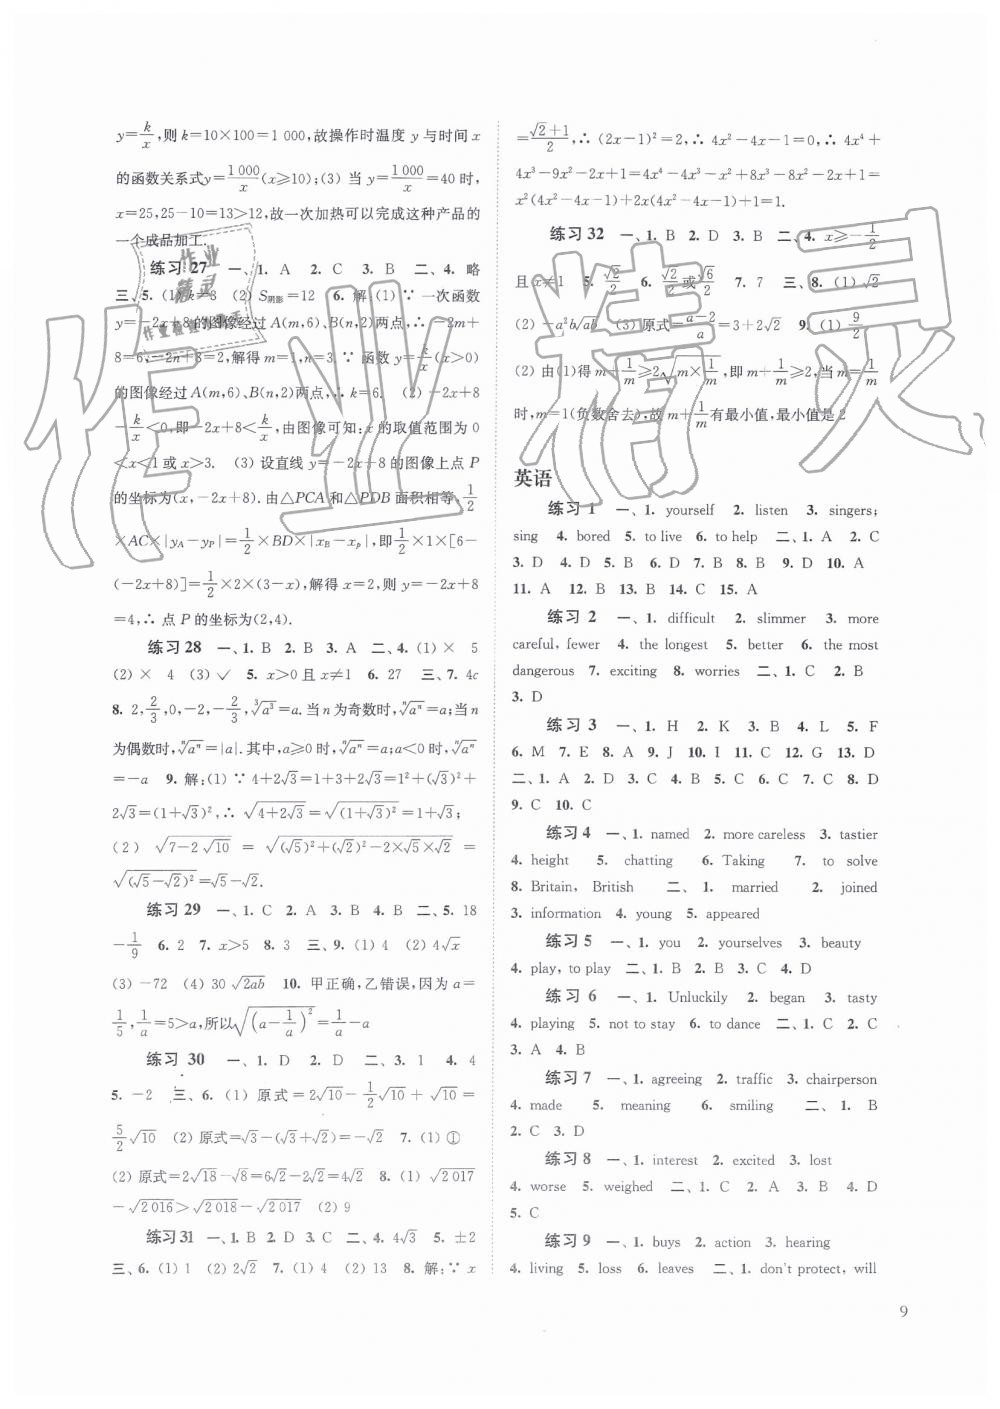 y=k/x,则 k=10×100=1 000,故操作时温度 y 与时间 x
的函数关系式y=1 000/x(x≥10);(3) 当 y=1 000/x=40 时,
x=25,25-10=13>12,故一次加热可以完成这种产品的
一个成品加工.
练习 27 一、1. A 2. C 3. B 二、4. 略
三、5. (1) k=8 (2) S阴影=12 6. 解:(1) ∵ 一次函数
y=-2x+8的图像经过 A(m,6)、B(n,2)两点,∴ -2m+
8=6,-2n+8=2,解得 m=1,n=3. ∵ 函数 y=k/x(x>0)
的图像经过 A(m,6)、B(n,2)两点,∴ k=6. (2) -2x+8
-k/x<0,即-2x+8<k/x,由图像可知:x 的取值范围为 0
<x<1 或 x>3. (3) 设直线 y=-2x+8 的图像上点 P
的坐标为(x,-2x+8).由△PCA和△PDB 面积相等,1/2
×AC×|yA-yP|=1/2×BD×|xB-xp|,即1/2×1×[6-
(-2x+8)]=1/2×2×(3-x),解得 x=2,则 y=-2x+8
=4,∴ 点 P 的坐标为(2,4).
练习 28 一、1. B 2. B 3. A 二、4. (1) × 5
(2) × 4 (3) ✓ 5. x>0 且 x≠1 6. 27 三、7. 4c
8. 2,2/3,0,-2,-2/3,∛a³=a.当 n 为奇数时,ⁿ√aⁿ=a;当 n
为偶数时,ⁿ√aⁿ=|a|.其中,a≥0 时,ⁿ√aⁿ=a;a<0 时,ⁿ√aⁿ
=-a 9. 解:(1) ∵ 4+2√3=1+3+2√3=1²+(√3)²+
2√3=(1+√3)²,∴ √(4+2√3)=√((1+√3)²)=1+√3;
(2) √(7-2√10) = √((√5)²+(√2)²-2×√5×√2) =
√((√5-√2)²)=√5-√2.
练习 29 一、1. C 2. A 3. B 4. B 二、5. 18
-1/9 6. 2 7. x>5 8. 3 三、9. (1) 4 (2) 4√x
(3) -72 (4) 30√2ab 10. 甲正确,乙错误,因为 a=
1/5,1/a=5>a,所以√((a-1/a)²)=1/a-a
练习 30 一、1. D 2. D 二、3. 1 4. 4
5. -2 三、6. (1) 原式=2√10-1/2√10+√10=
5/2√10 (2) 原式=√3-(√3+√2)=-√2 7. (1) ①
(2) 原式=2√18-√8=6√2-2√2=4√2 8. (1) √2 017
-√2 016>√2 018-√2 017 (2) 9
练习 31 一、1. B 2. D 3. C 二、4. 4√3 5. ±2
三、6. (1) 1 (2) 2√2 7. (1) 4 (2) 13 8. 解:∵ x
=(√2+1)/2,∴ (2x-1)²=2,∴ 4x²-4x-1=0,∴ 4x⁴+
4x³-9x²-2x+1=4x⁴-4x³-x²+8x³-8x²-2x+1=
x²(4x²-4x-1)+2x(4x²-4x-1)+1=1.
练习 32 一、1. B 2. D 3. B 二、4. x≥-1/2
且 x≠1 5. √2/2 6. √2/2或√6/2 7. 7 三、8. (1) √2
(2) -a²b√ab (3) 原式=(a-2)/a=3+2√2 9. (1) 9/2
(2) 由(1)得 m+1/m≥2√(m×1/m),即 m+1/m≥2,当 m=1/m
时,m=1(负数舍去),故 m+1/m有最小值,最小值是 2
英语
练习 1 一、1. yourself 2. listen 3. singers;
sing 4. bored 5. to live 6. to help 二、1. A 2. C
3. D 4. D 5. B 6. D 7. B 8. B 9. D 10. A
11. A 12. B 13. B 14. C 15. A
练习 2 一、1. difficult 2. slimmer 3. more
careful, fewer 4. the longest 5. better 6. the most
dangerous 7. exciting 8. worries 二、1. C 2. B
3. D
练习 3 一、1. H 2. K 3. B 4. L 5. F
6. M 7. E 8. A 9. J 10. I 11. C 12. G 13. D
二、1. A 2. D 3. C 4. B 5. C 6. C 7. C 8. D
9. C 10. C
练习 4 一、1. named 2. more careless 3. tastier
4. height 5. chatting 6. Taking 7. to solve
8. Britain, British 二、1. married 2. joined
3. information 4. young 5. appeared
练习 5 一、1. you 2. yourselves 3. beauty
4. play, to play 二、1. B 2. B 3. C 4. D
练习 6 一、1. Unluckily 2. began 3. tasty
4. playing 5. not to stay 6. to dance 二、1. C 2. C
3. A 4. B
练习 7 一、1. agreeing 2. traffic 3. chairperson
4. made 5. meaning 6. smiling 二、1. B
2. C 3. D
练习 8 一、1. interest 2. excited 3. lost
4. worse 5. weighed 二、1. C 2. A 3. B 4. D
5. C
练习 9 一、1. buys 2. action 3. hearing
4. living 5. loss 6. leaves 二、1. don't protect, will
9
作业精灵